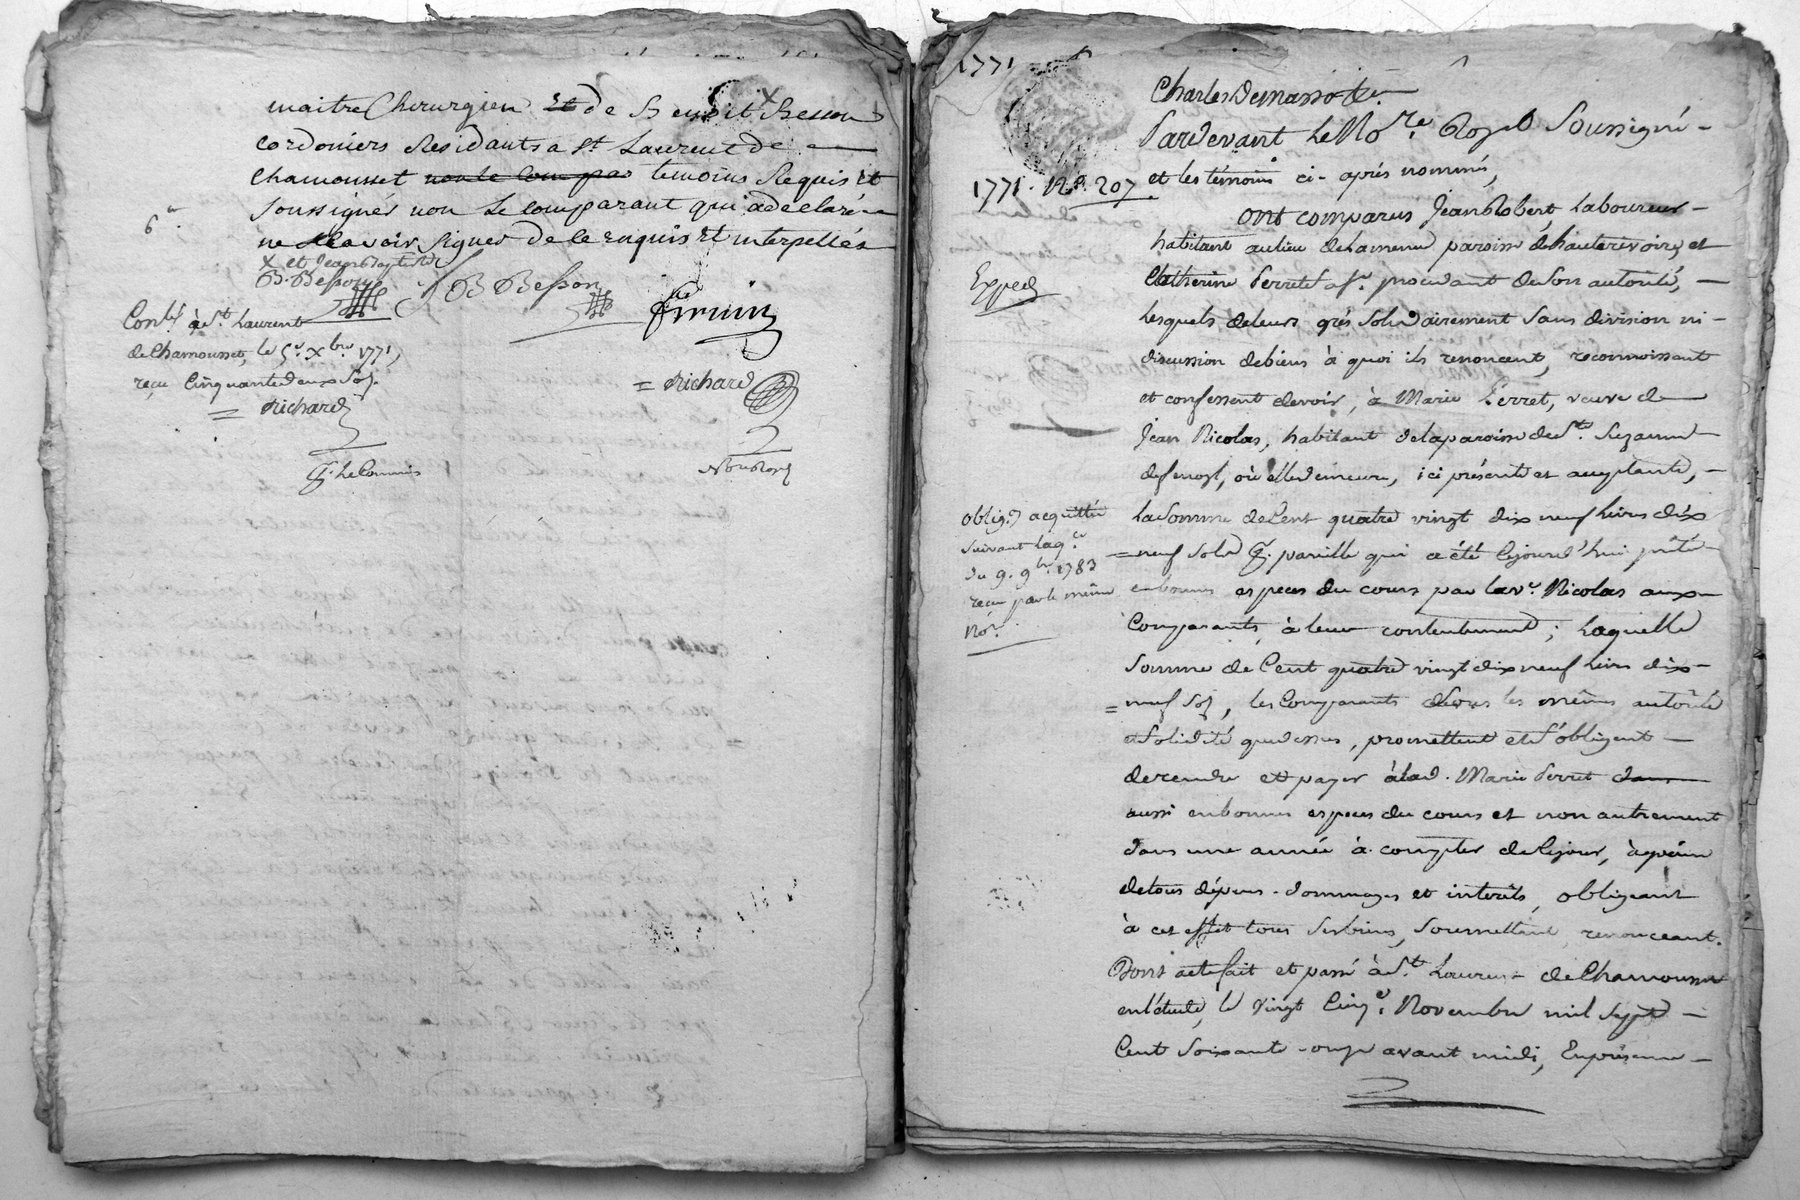 maitre Chirurgien Et de Benoit Besson
cordoniers Residants a St. Laurent de
Chamousset temoins Requis Et
soussignés non Le Comparant qui a declaré
ne scavoir signer de ce Enquis Et interpellés
X et Jean Baptiste
B. Besson
B Besson
Contlé à St. Laurent
de Chamousset, le 5e. Xbre 1771,
reçu Cinquante deux sols
= Richard
= Richard
p. Le Commis
Nore Royal
1771
1771. No. 207.
Exped
pardevant Le Nore Royal Soussigné
et les témoins ci-après nommés,
ont comparus Jean Robert, Laboureur
habitant au lieu de paroisse de hauterivoire, et
Catherine Perret sa fe. procédant de son autorité,
Lesquels de leurs grés solidairement sans division ni
discussion de biens à quoi ils renoncent, reconnoissent
et confessent devoir, à Marie Perret, veuve de
Jean Nicolas, habitant de la paroisse de Ste. Suzanne
où elle demeure, ici présente et acceptante,
La Somme de Cent quatre vingt dix neuf Livres dix
= neuf Sols p. pareille qui a été Cejourd'hui prêté
en bonnes especes du cours par la ve. Nicolas aux
Comparants, à leur contentement; Laquelle
Somme de Cent quatre vingt dix neuf Livres dix
= neuf Sols, les Comparants sous les mêmes autorité
et solidité que dessus, promettent et s'obligent
de rendre et payer à lad. Marie Perret
aussi en bonnes especes du cours et non autrement
dans une année à compter de Cejour, à peine
de tous dépens dommages et interêts, obligeant
à cet effet tous Ses biens, Soumettant, renonceant.
Dont acte fait et passé à St. Laurent de Chamousset
en l'étude, le vingt Cinq Novembre mil Sept
Cent Soixante onze avant midi, En présence
obligon acquittée
suivant la qce
du 9. 9bre 1783
reçue par le même
Nore